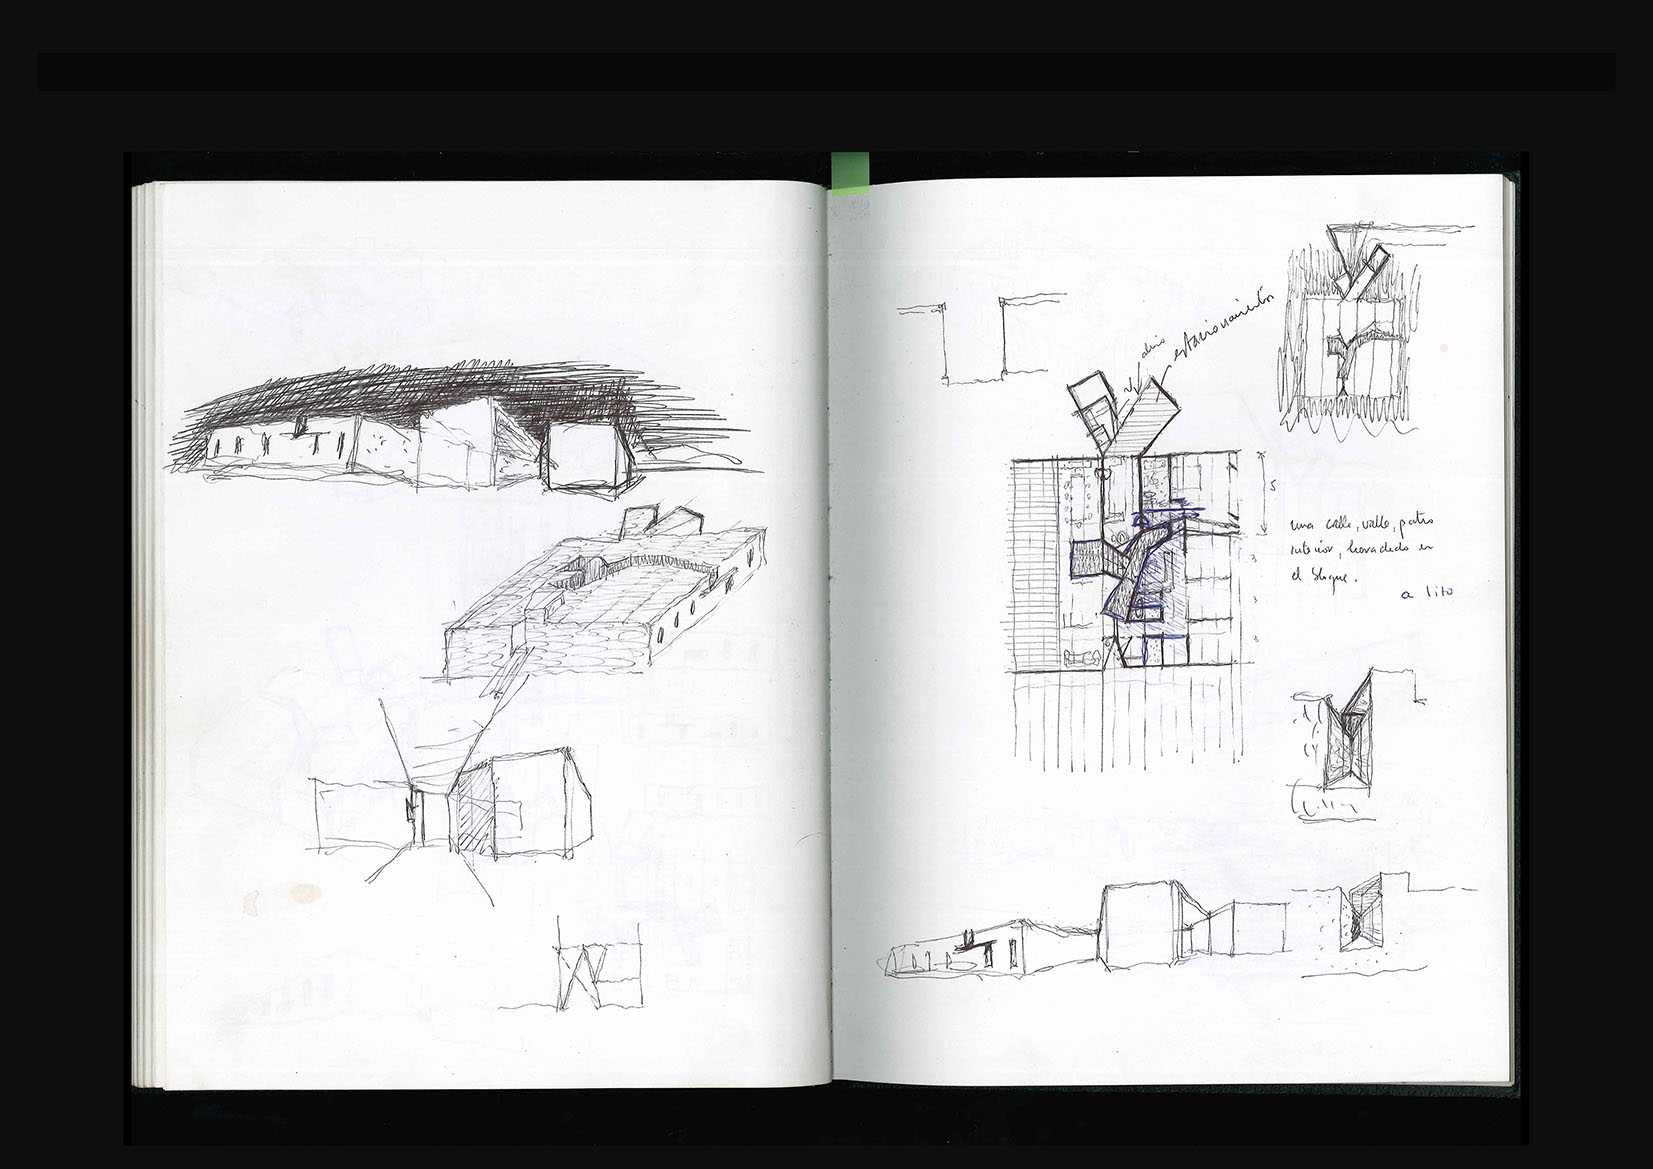 estacionamiento
5
una calle, valle, patio
interior, horadado en
el bloque.
3
3
a lito
3